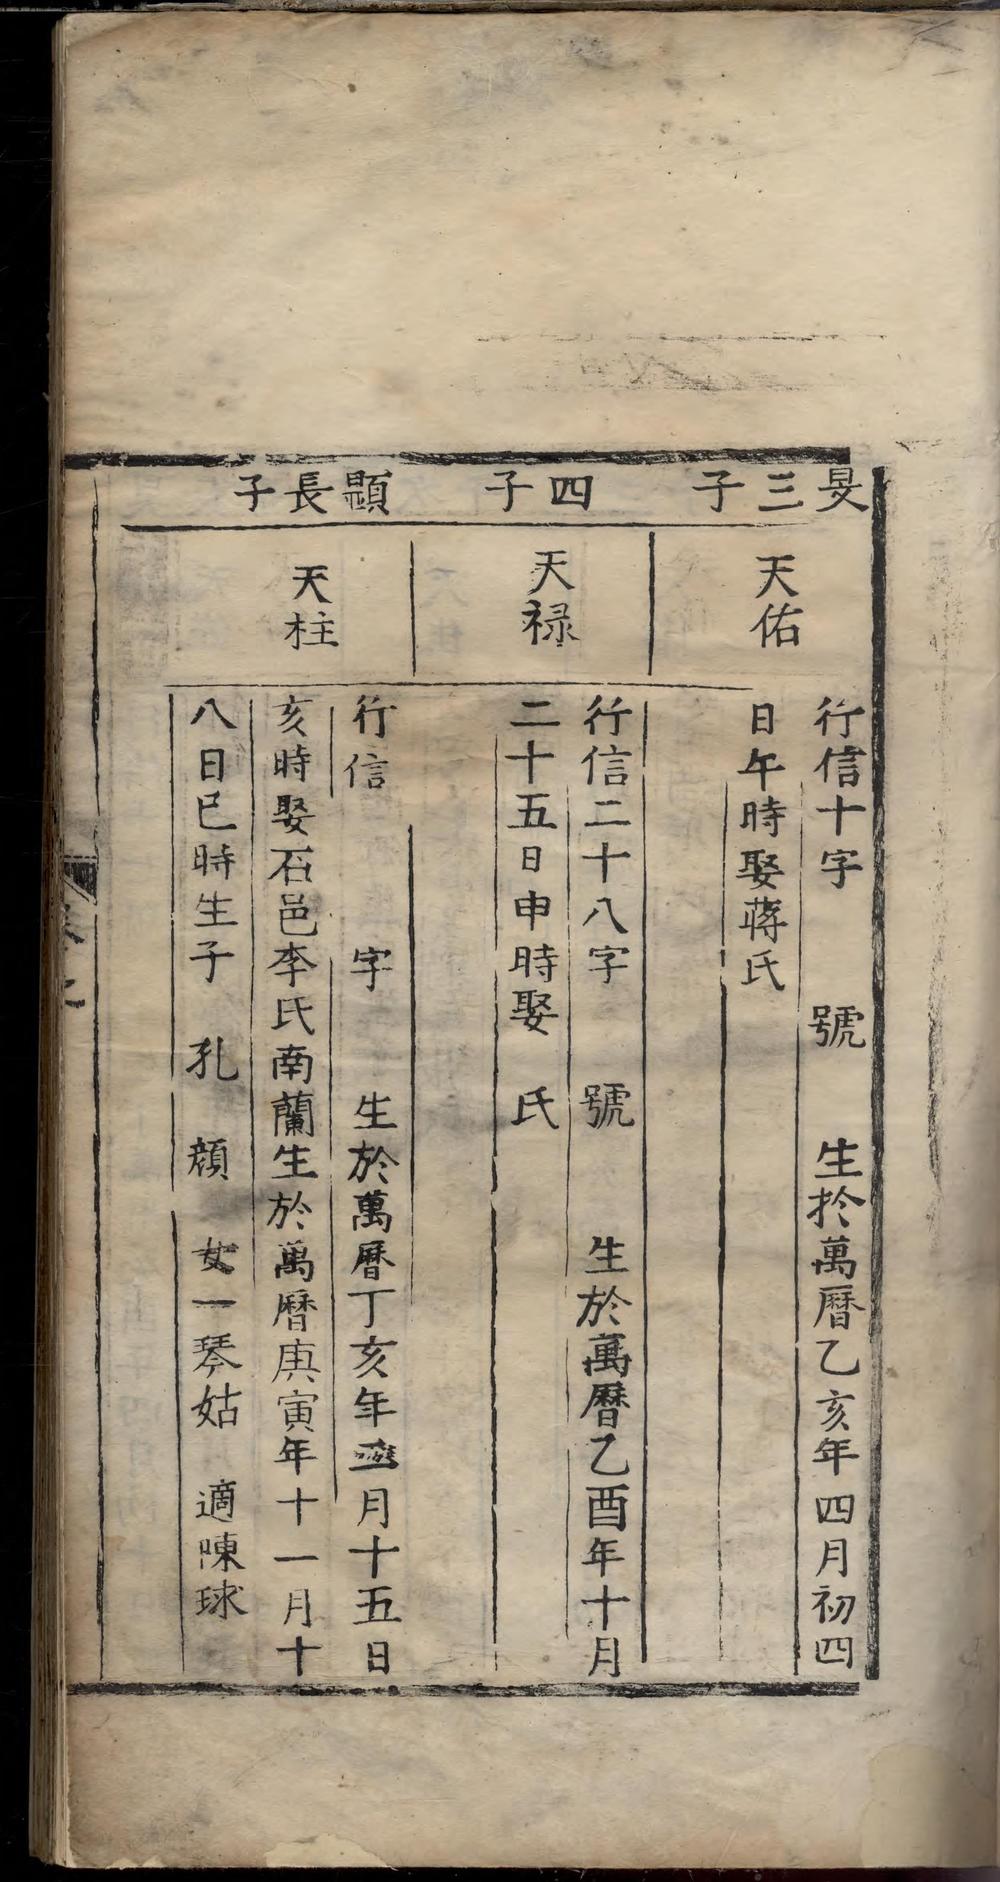 旻三子
天佑
行信十字　號　生扵萬曆乙亥年四月初四
日午時娶蔣氏
四子
天禄
行信二十八字　號　生於萬曆乙酉年十月
二十五日申時娶　氏
顕長子
天柱
行信　字　生於萬曆丁亥年　月十五日
亥時娶石邑李氏南蘭生於萬曆庚寅年十一月十
八日巳時生子　孔　顔　女一琴姑　適陳球